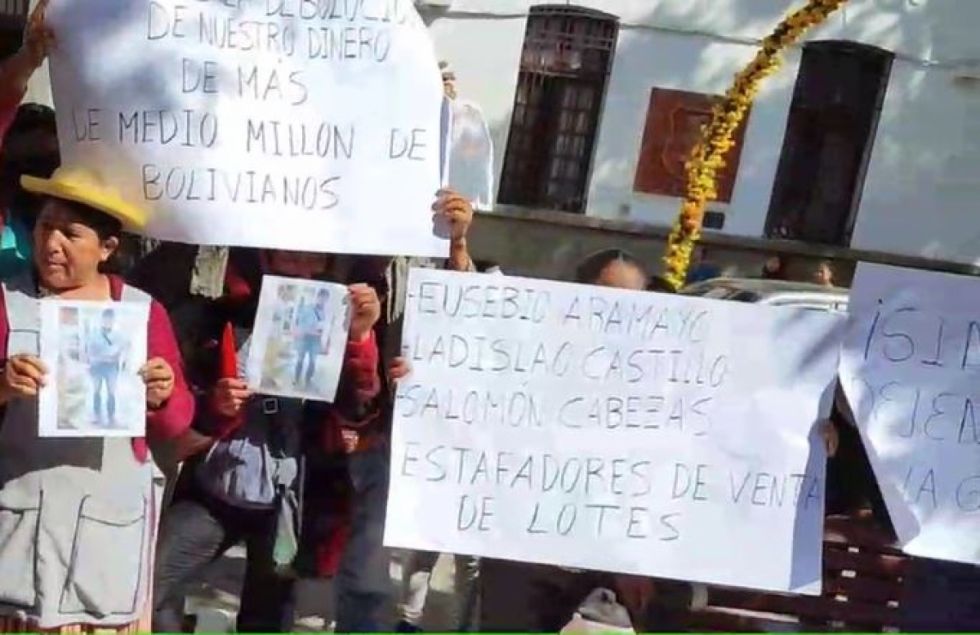 DE NUESTRO DINERO
DE MÁS
DE MEDIO MILLON DE
BOLIVIANOS
-EUSEBIO ARAMAYO
-LADISLAO CASTILLO
-SALOMÓN CABEZAS
ESTAFADORES DE VENTA
DE LOTES